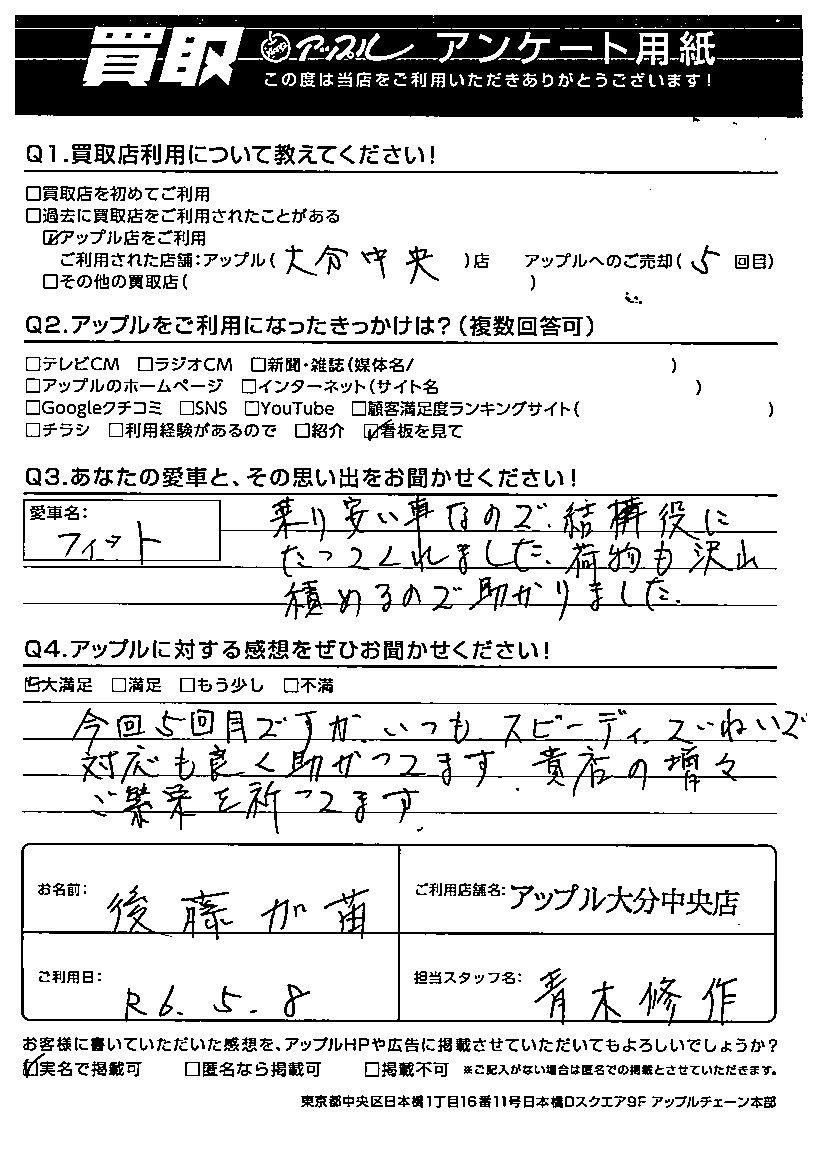 買取 アップル アンケート用紙
この度は当店をご利用いただきありがとうございます!
Q1.買取店利用について教えてください!
□買取店を初めてご利用
□過去に買取店をご利用されたことがある
☑アップル店をご利用
ご利用された店舗:アップル(大分中央)店 アップルへのご売却(5回目)
□その他の買取店( )
Q2.アップルをご利用になったきっかけは?(複数回答可)
□テレビCM □ラジオCM □新聞・雑誌(媒体名/ )
□アップルのホームページ □インターネット(サイト名 )
□Googleクチコミ □SNS □YouTube □顧客満足度ランキングサイト( )
□チラシ □利用経験があるので □紹介 ☑看板を見て
Q3.あなたの愛車と、その思い出をお聞かせください!
愛車名:
フィット
乗り安い車なので、結構役に
たってくれました。荷物も沢山
積めるので助かりました。
Q4.アップルに対する感想をぜひお聞かせください!
☑大満足 □満足 □もう少し □不満
今回5回目ですが、いつも、スピーディ、ていねいで
対応も良く助かってます。貴店の増々
ご繁栄を祈ってます。
お名前: 後藤加苗
ご利用店舗名:アップル大分中央店
ご利用日: R6.5.8
担当スタッフ名: 青木修作
お客様に書いていただいた感想を、アップルHPや広告に掲載させていただいてもよろしいでしょうか?
☑実名で掲載可 □匿名なら掲載可 □掲載不可 ※ご記入がない場合は匿名での掲載とさせていただきます。
東京都中央区日本橋1丁目16番11号日本橋Dスクエア9F アップルチェーン本部